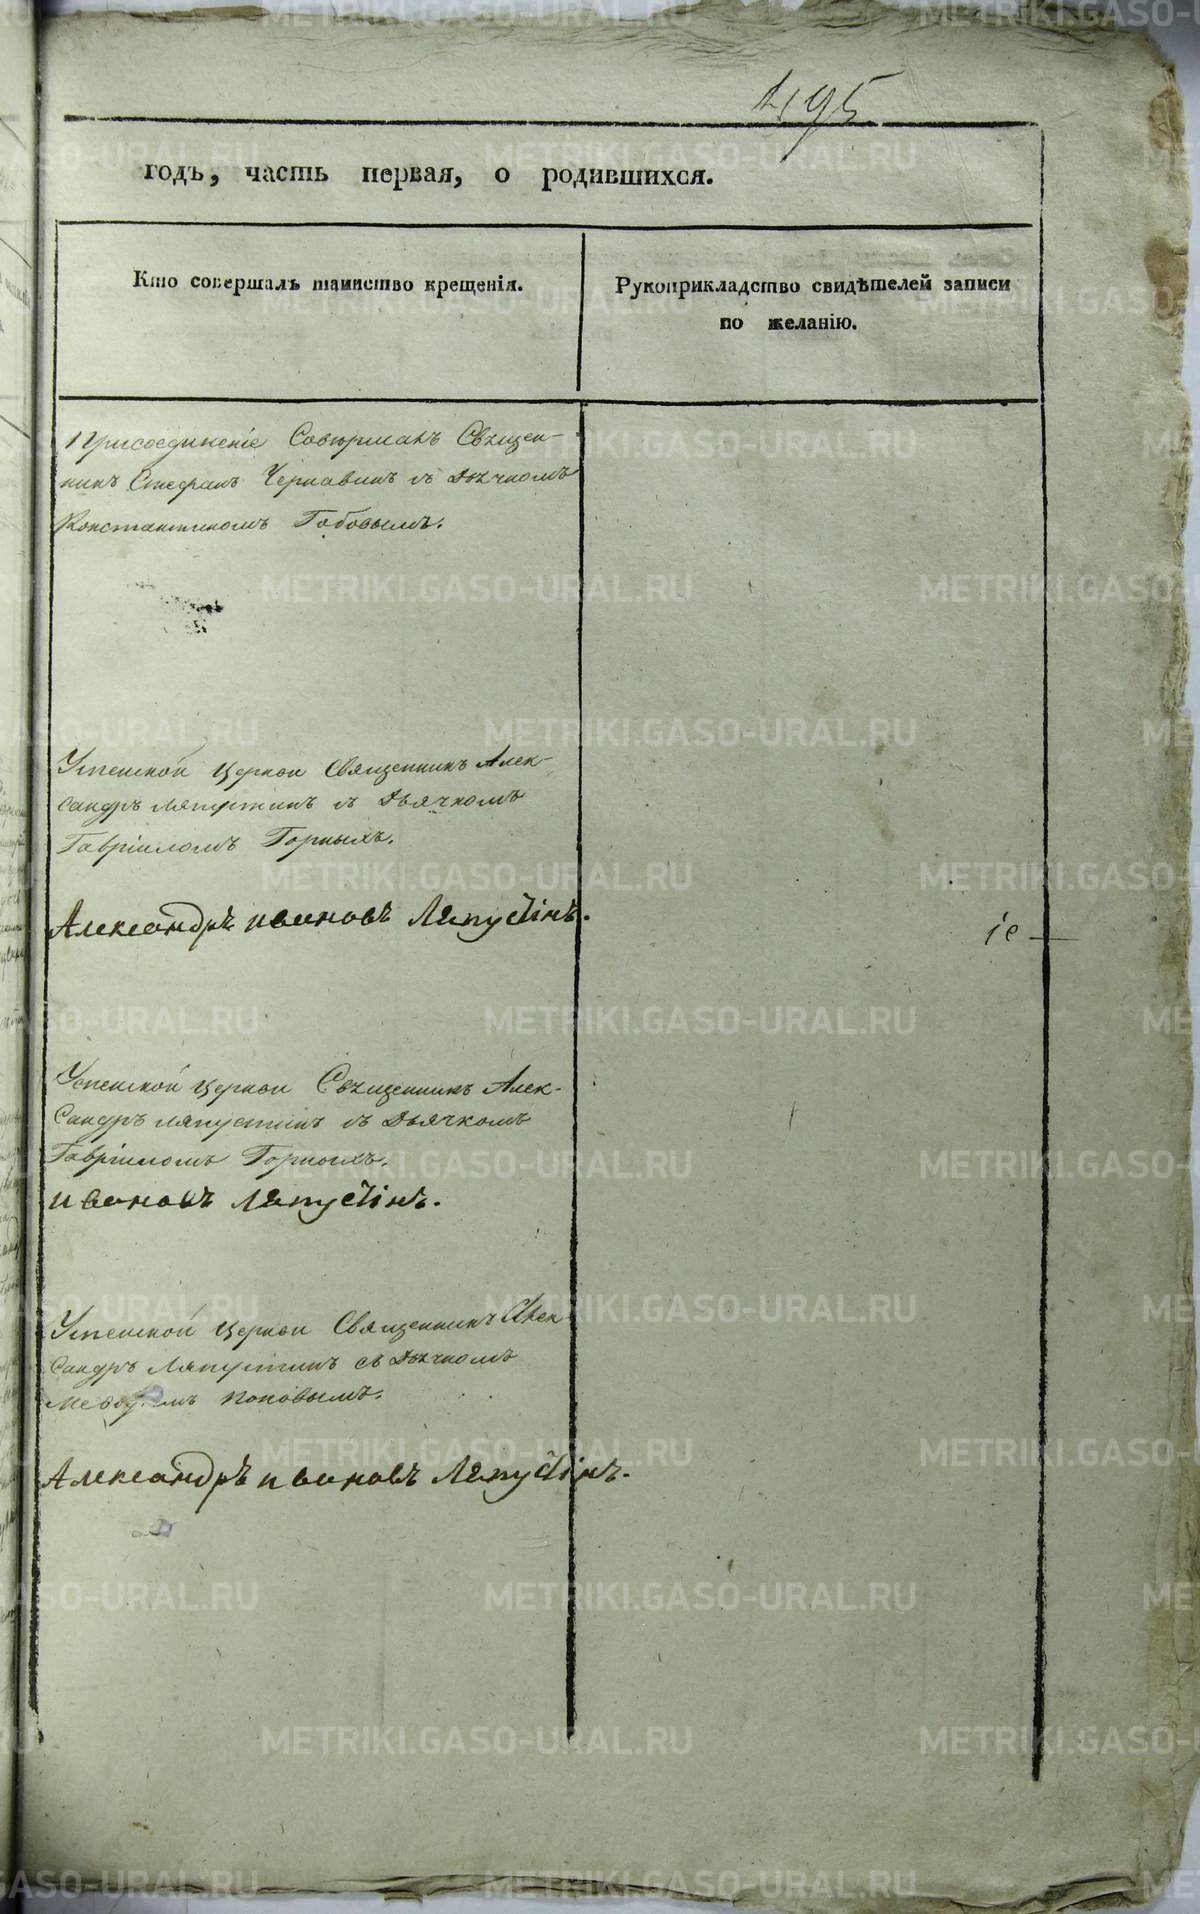 495
годъ, часть первая, о родившихся.
Кто совершалъ таинство крещенія.
Рукоприкладство свидѣтелей записи
по желанію.
Присоединеніе Совершалъ Священ-
никъ Стефанъ Чернавинъ съ Дьячкомъ
Константиномъ Бобовымъ.
Успенской Церкви Священникъ Алек-
сандръ Ляпустинъ съ Дьячкомъ
Гавріиломъ Горныхъ.
Александръ Ивановъ Ляпустінъ.
іе
Успенской Церкви Священникъ Алек-
сандръ Ляпустинъ съ Дьячкомъ
Гавріиломъ Горныхъ.
Ивановъ Ляпустінъ.
Успенской Церкви Священникъ Алек
сандръ Ляпустинъ съ Дьячкомъ
Поповымъ.
Александръ Ивановъ Ляпустінъ.
METRIKI.GASO-URAL.RU